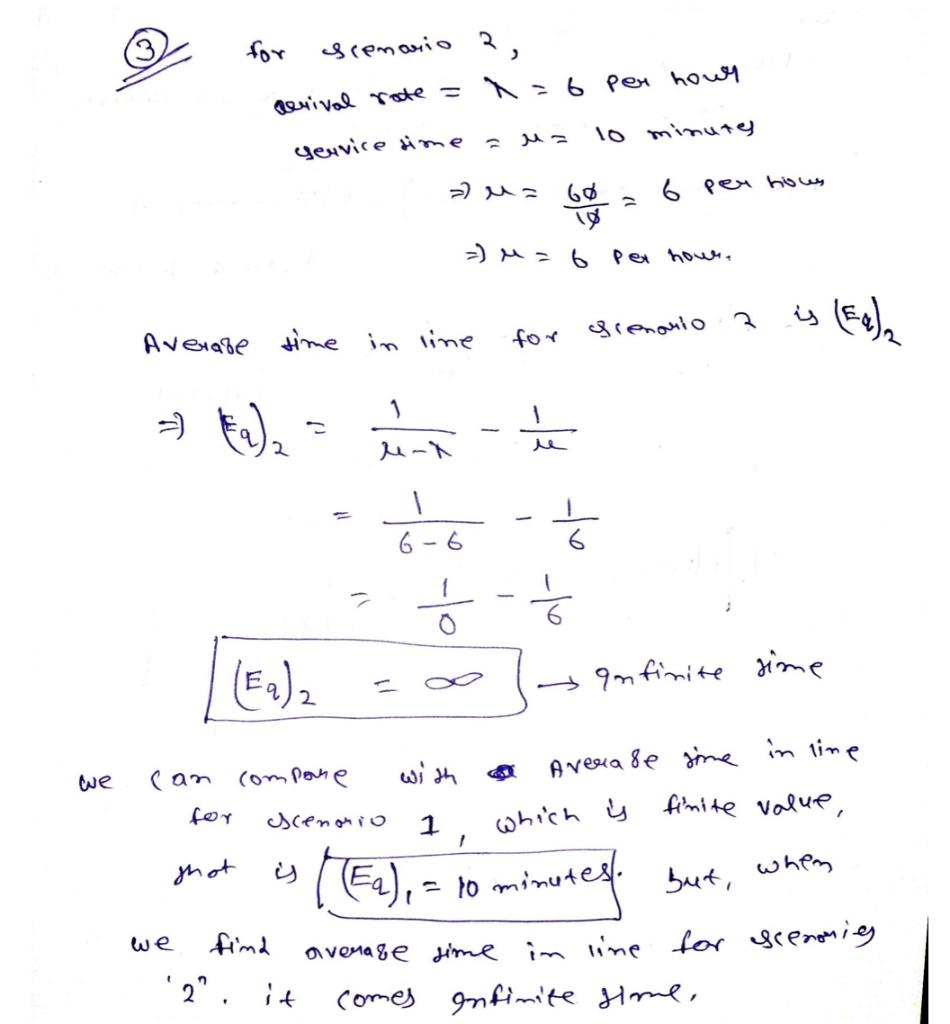 ③ for scenario 2,
arrival rate = λ = 6 per hour
service time = μ = 10 minutes
⇒ μ = 60/10 = 6 per hour
⇒ μ = 6 per hour.
Average time in line for scenario 2 is (Eq)₂
⇒ (Eq)₂ = 1/(μ-λ) - 1/μ
= 1/(6-6) - 1/6
= 1/0 - 1/6
(Eq)₂ = ∞ → Infinite time
we can compare with Average time in line
for scenario 1, which is finite value,
that is (Eq)₁ = 10 minutes. but, when
we find average time in line for scenories
'2". it comes Infinite time.